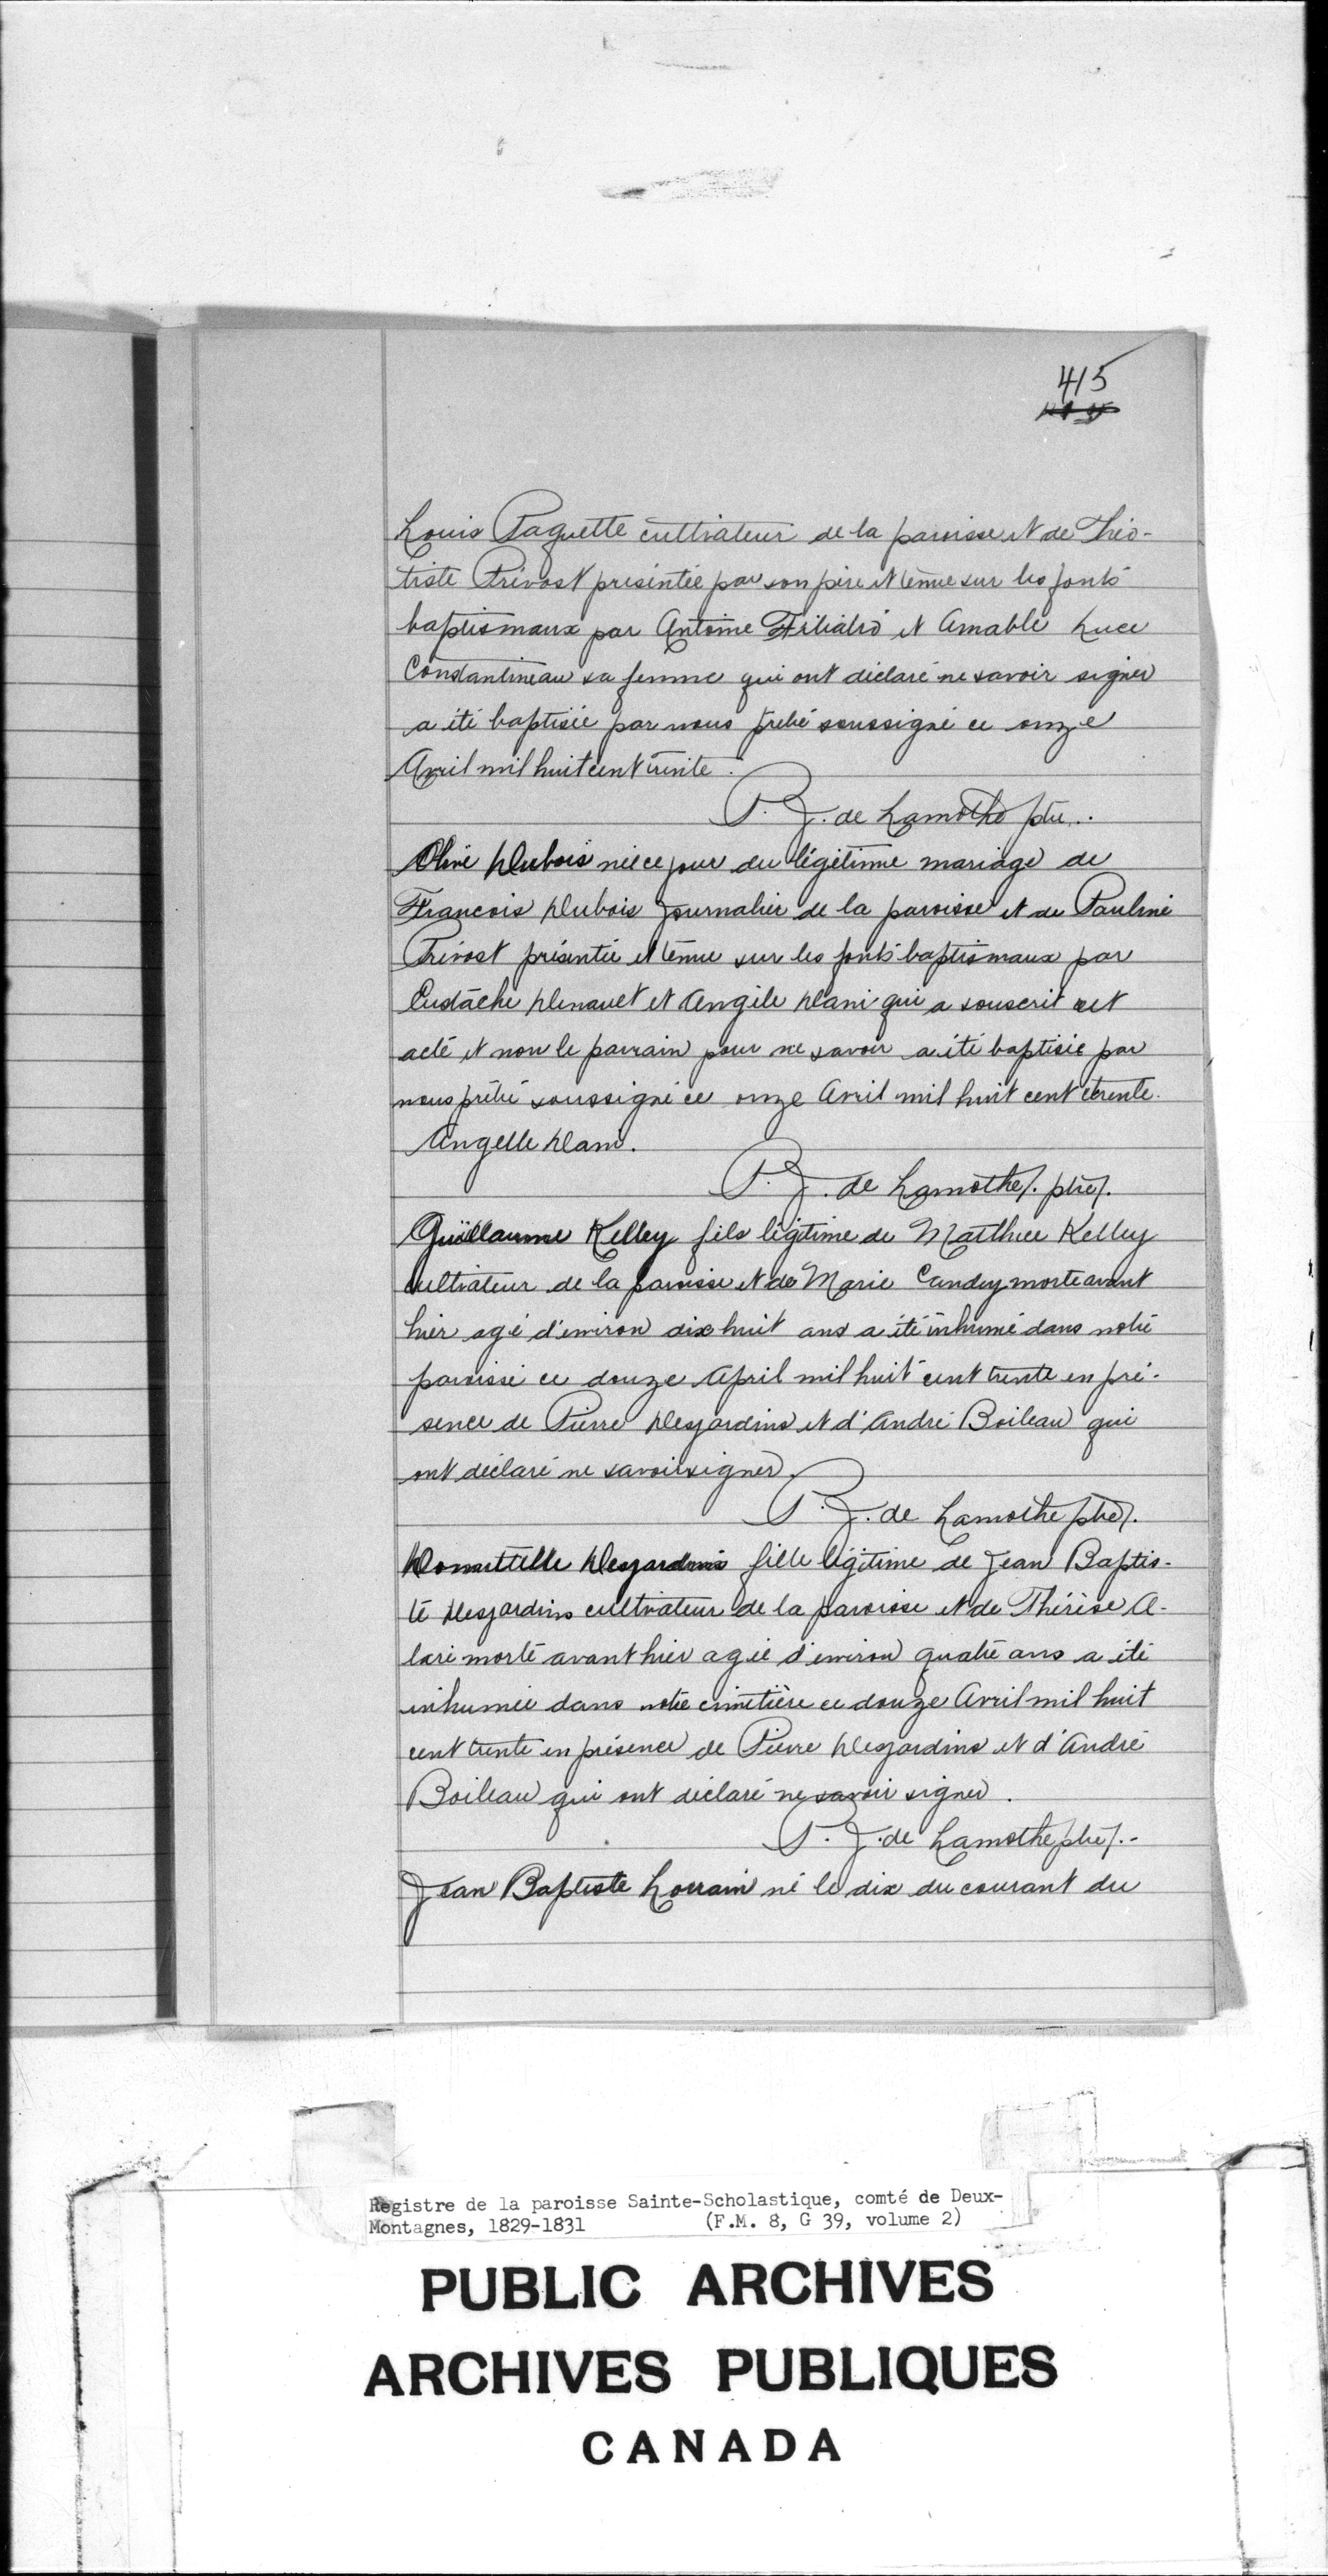 415
Louis Paquette cultivateur de la paroisse et de Théo-
tiste Prévost présintée par son père et tenue sur les fonts
baptismaux par Antoine Filiatro et Amable Luce
Constantineau sa femme qui ont déclaré ne savoir signer
a été baptisée par nous prêtre soussigné ce onze
Avril mil huit cent trente.
P. J. de Lamothe ptre..
Olive Dubois née ce jour du légitime mariage de
Francois Dubois journalier de la paroisse et de Pauline
Prévost présintée et tenue sur les fonts baptismaux par
Eustache et Angèle Dani qui a souscrit cet
acte et non le parrain pour ne savoir a été baptisée par
nous prêtre soussigné ce onze Avril mil huit cent trente.
Angelle Dani.
P. J. de Lamothe/. ptre/.
Guillaume Kelley fils légitime de Matthieu Kelley
cultivateur de la paroisse et de Marie Candey morte avant
hier agé d'environ dix huit ans a été inhumé dans notre
paroisse ce douze April mil huit cent trente en pré-
sence de Pierre Desjardins et d'André Boileau qui
ont déclaré ne savoir signer.
P. J. de Lamothe ptre/.
Domittille Desjardins fille légitime de Jean Baptis-
te Desjardins cultivateur de la paroisse et de Thérèse A-
lari morte avant hier agée d'environ quatre ans a été
inhumée dans notre cimetière ce douze Avril mil huit
cent trente en présence de Pierre Desjardins et d'André
Boileau qui ont déclaré ne savoir signer.
P. J. de Lamothe ptre/.-
Jean Baptiste Lorrain né le dix du courant du
Registre de la paroisse Sainte-Scholastique, comté de Deux-
Montagnes, 1829-1831 (F.M. 8, G 39, volume 2)
PUBLIC ARCHIVES
ARCHIVES PUBLIQUES
CANADA